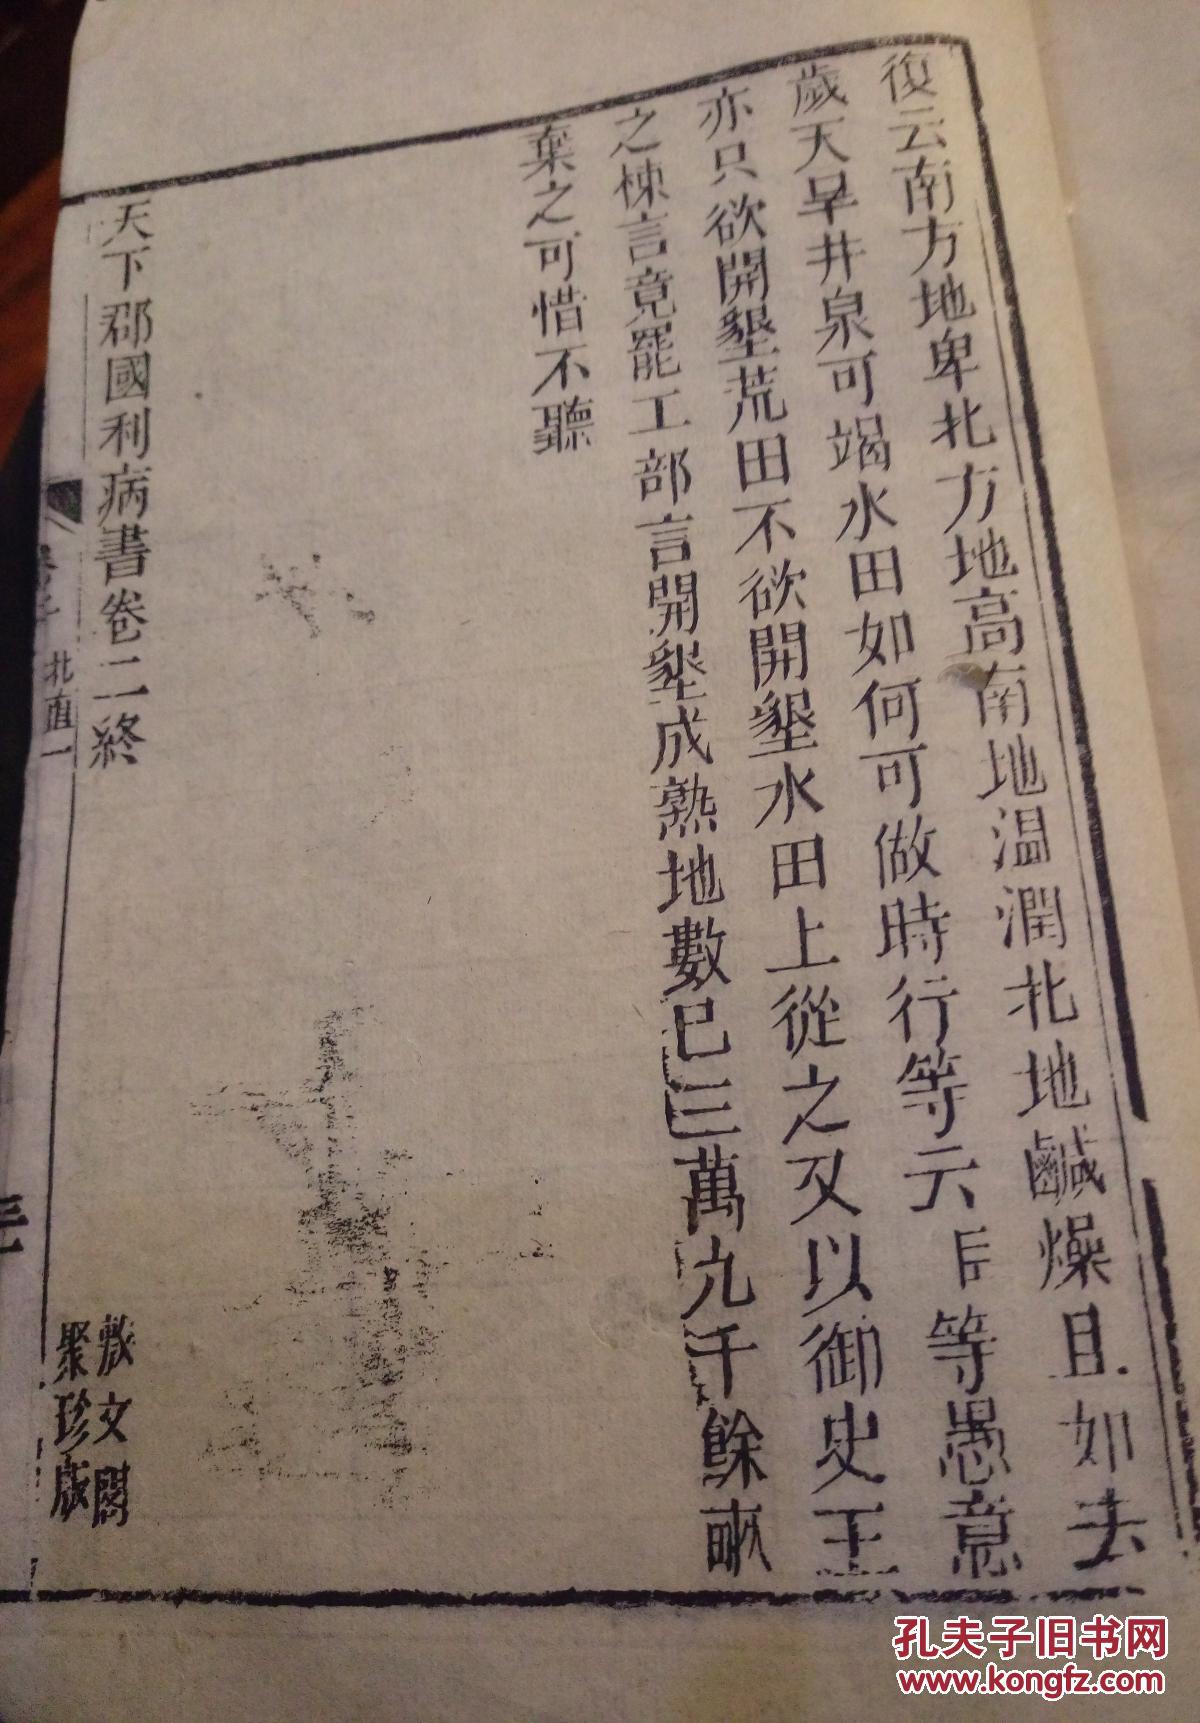 復云南方地卑北方地高南地温潤北地鹹燥且如去
歲天旱井泉可竭水田如何可做時行等云臣等愚意
亦只欲開墾荒田不欲開墾水田上從之又以御史王
之棟言竟罷工部言開墾成熟地數已三萬九千餘畝
棄之可惜不聽
天下郡國利病書卷二終
北直一
敷文閣
聚珍版
孔夫子旧书网
www.kongfz.com